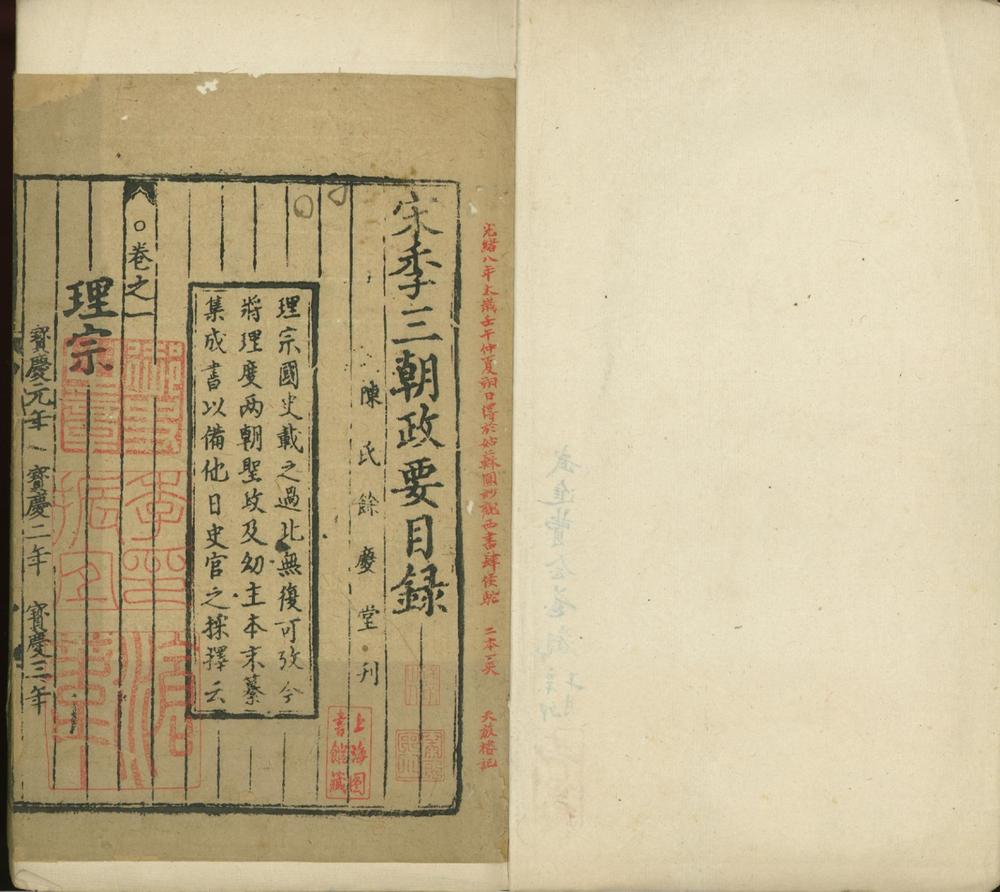 光緒八年太歲壬午仲夏朔日得於姑蘇圓妙觀西書肆侯駝
天放樓記
宋季三朝政要目錄
陳氏餘慶堂刊
理宗國史載之過北無復可攷今
將理度两朝聖政及幼主本末纂
集成書以備他日史官之採擇云
卷之一
理宗
寳慶元年 寳慶二年 寳慶三年
上海图
書館藏